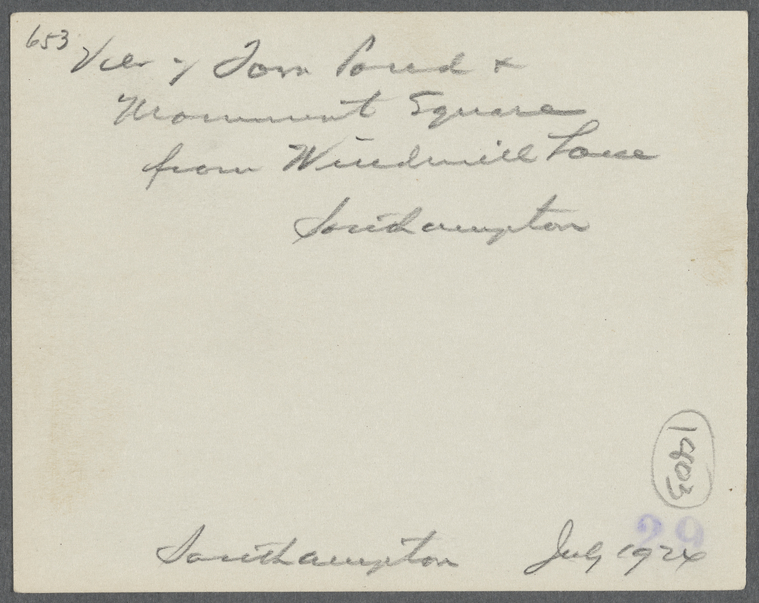 653
View of Town Pond &
Monument Square
from Windmill Lane
Southampton
1903
29
Southampton July 1924